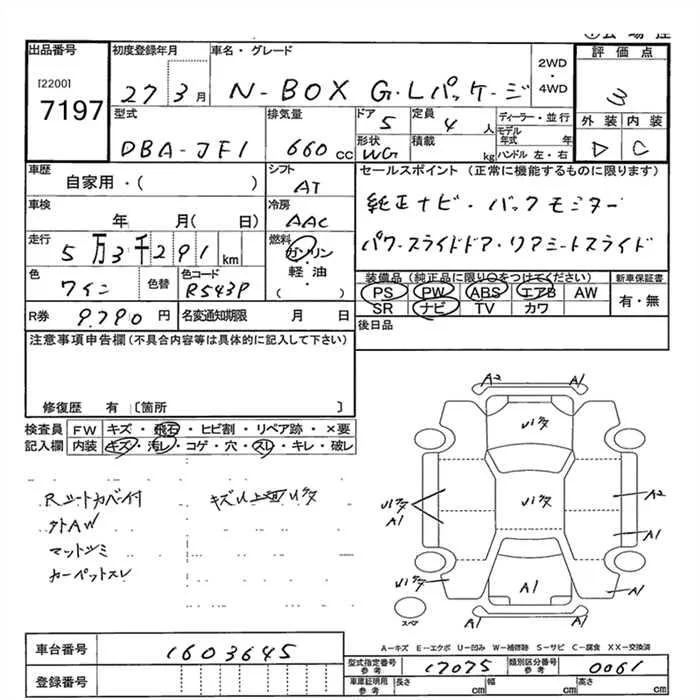 出品番号
[2200]
7197
初度登録年月
27 3月
車名・グレード
N-BOX G・Lパッケージ
2WD
・
4WD
評価点
3
型式
DBA-JF1
排気量
660 cc
ドア
5
形状
WG
定員
4 人
積載
kg
ディーラー・並行
モデル年式 年
ハンドル 左・右
外装 内装
D C
車歴
自家用・( )
シフト
AT
セールスポイント(正常に機能するものに限ります)
純正ナビ・バックモニター
パワースライドドア・リアシートスライド
車検
年 月( 日)
冷房
AAC
走行
5万3千291km
燃料
ガソリン
・
軽・油
( )
色
ワイン
色替
色コード
R543P
装備品(純正品に限り○をつけてください)
PS PW ABS エアB AW
SR ナビ TV カワ
新車保証書
有・無
R券 9,790円
名変通知期限 月 日
後日品
注意事項申告欄(不具合内容等は具体的に記入して下さい)
修復歴 有 〔箇所 〕
検査員
記入欄
FW キズ・飛石・ヒビ割・リペア跡・×要
内装 キズ・汚レ・コゲ・穴・スレ・キレ・破レ
Rシートカバー付
外AW
マットシミ
カーペットスレ
A2
A1
A2
A1
A1
A1
A1
A1
A1
スペア
A－キズ E－エクボ U－凹み W－補修跡 S－サビ C－腐食 XX－交換済
車台番号
1603645
登録番号
型式指定番号
参考
17075
類別区分番号
参考
0061
車庫証明用
参考
長さ cm
幅 cm
高さ cm